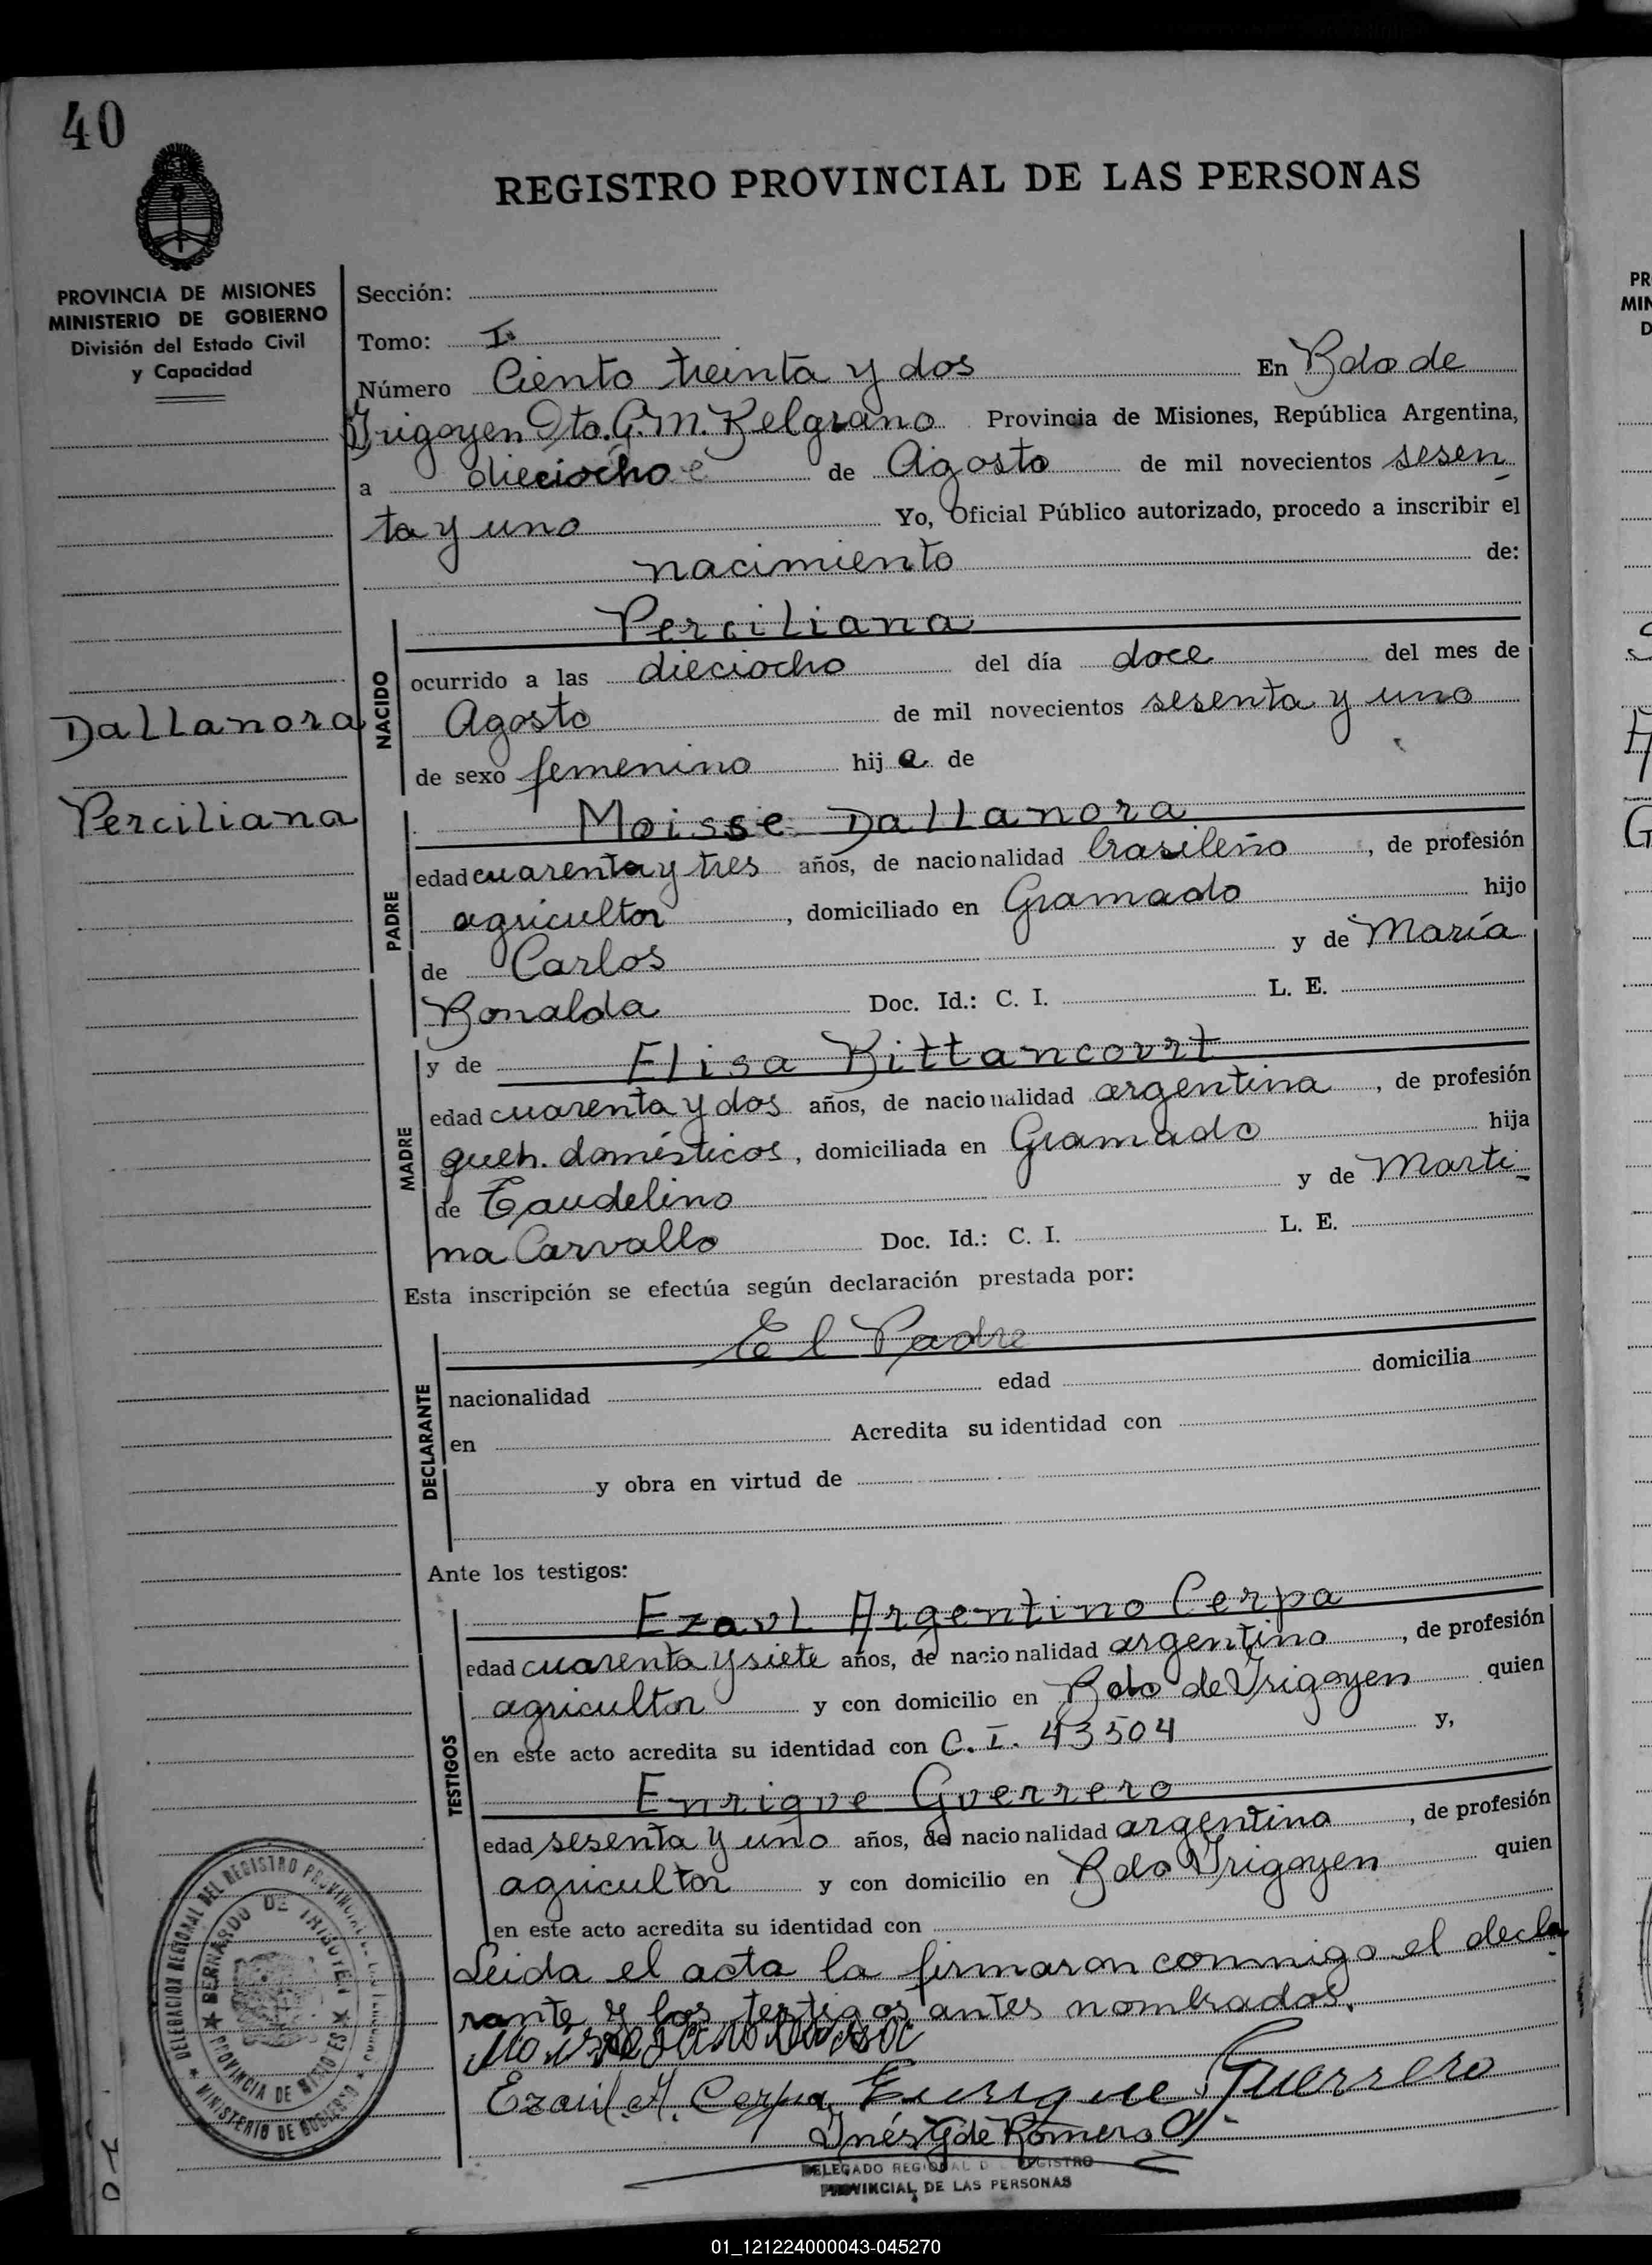 40
REGISTRO PROVINCIAL DE LAS PERSONAS
PROVINCIA DE MISIONES
MINISTERIO DE GOBIERNO
División del Estado Civil
y Capacidad
Dallanora
Perciliana
Sección:
Tomo: I
Número Ciento treinta y dos En Bdo de
Irigoyen Dto. G. M. Belgrano Provincia de Misiones, República Argentina,
a dieciocho de Agosto de mil novecientos sesen
ta y uno Yo, Oficial Público autorizado, procedo a inscribir el
nacimiento de:
NACIDO
Perciliana
ocurrido a las dieciocho del día doce del mes de
Agosto de mil novecientos sesenta y uno
de sexo femenino hija de
PADRE
Moisse Dallanora
edad cuarenta y tres años, de nacionalidad brasileño, de profesión
agricultor, domiciliado en Gramado hijo
de Carlos y de María
Bonalda Doc. Id.: C. I. L. E.
MADRE
y de Elisa Bittancourt
edad cuarenta y dos años, de nacionalidad argentina, de profesión
queh. domésticos, domiciliada en Gramado hija
de Taudelino y de Marti
na Carvallo Doc. Id.: C. I. L. E.
Esta inscripción se efectúa según declaración prestada por:
DECLARANTE
El Padre
nacionalidad edad domicilia
en Acredita su identidad con
y obra en virtud de
Ante los testigos:
TESTIGOS
Ezaul Argentino Cerpa
edad cuarenta y siete años, de nacionalidad argentino, de profesión
agricultor y con domicilio en Bdo de Irigoyen quien
en este acto acredita su identidad con C. I. 43504 y,
Enrique Guerrero
edad sesenta y uno años, de nacionalidad argentina, de profesión
agricultor y con domicilio en Bdo Irigoyen quien
en este acto acredita su identidad con
Leida el acta la firmaron conmigo el decla
rante y los testigos antes nombrados.
Ezaul A. Cerpa Enrique Guerrero
Inés G de Romero
DELEGADO REGIONAL DEL REGISTRO
PROVINCIAL DE LAS PERSONAS
DELEGACION REGIONAL DEL REGISTRO PROVINCIAL
BERNARDO DE IRIGOYEN
PROVINCIA DE MISIONES
MINISTERIO DE GOBIERNO
01_121224000043-045270